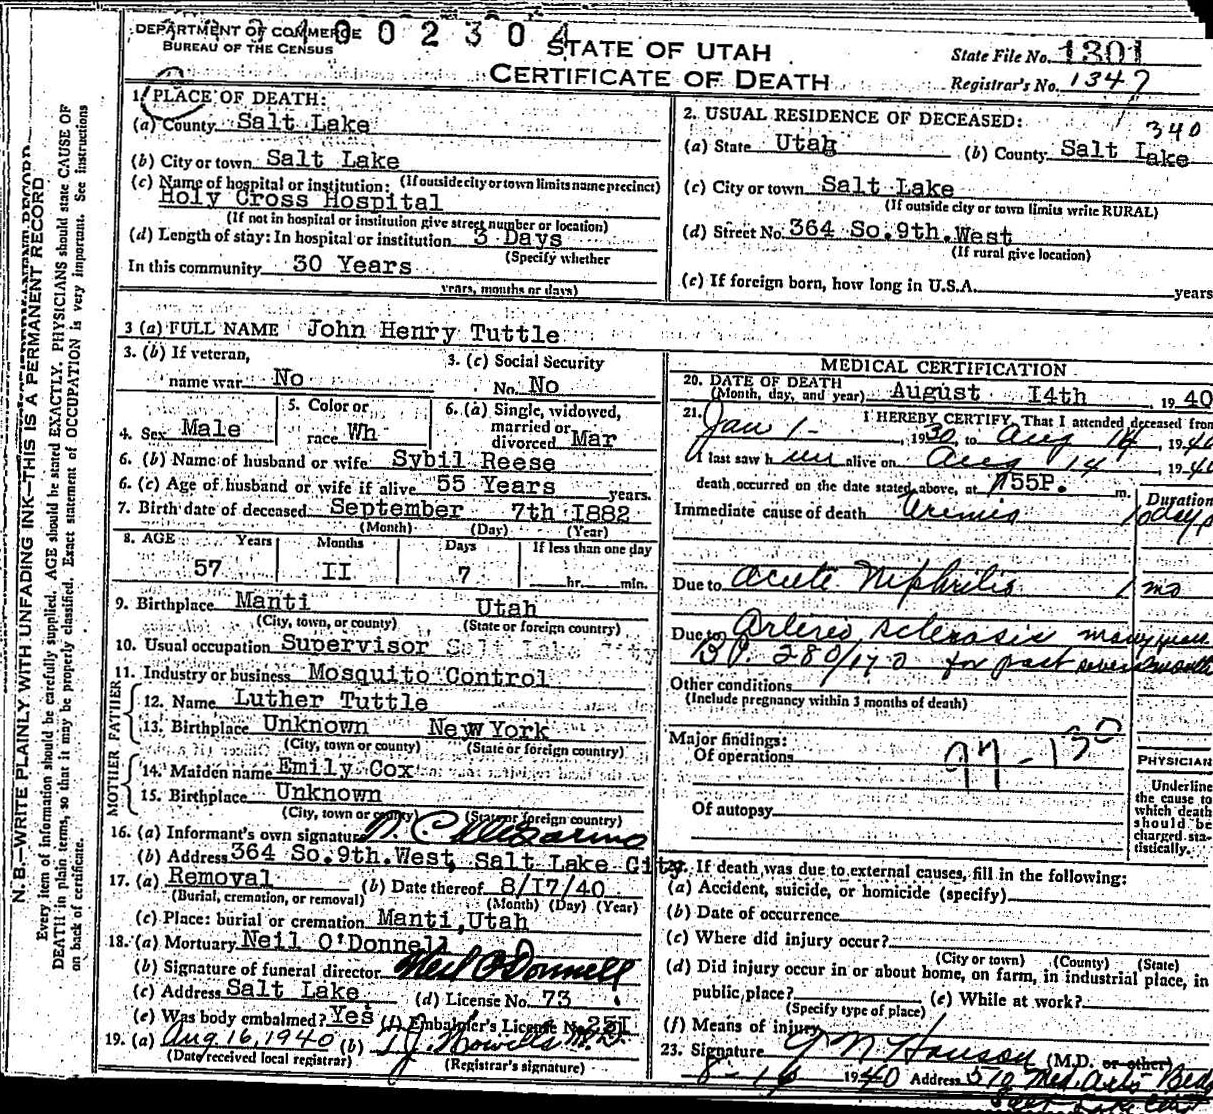 DEPARTMENT OF COMMERCE
BUREAU OF THE CENSUS
0 0 2 3 0 4
STATE OF UTAH
CERTIFICATE OF DEATH
State File No. 1301
Registrar's No. 1347
1. PLACE OF DEATH:
(a) County Salt Lake
(b) City or town Salt Lake
(If outside city or town limits name precinct)
(c) Name of hospital or institution:
Holy Cross Hospital
(If not in hospital or institution give street number or location)
(d) Length of stay: In hospital or institution 3 Days
(Specify whether
In this community 30 Years
years, months or days)
2. USUAL RESIDENCE OF DECEASED:
340
(a) State Utah (b) County Salt Lake
(c) City or town Salt Lake
(If outside city or town limits write RURAL)
(d) Street No. 364 So.9th.West
(If rural give location)
(e) If foreign born, how long in U.S.A. years
3 (a) FULL NAME John Henry Tuttle
3. (b) If veteran,
name war No
3. (c) Social Security
No. No
4. Sex Male
5. Color or
race Wh
6. (a) Single, widowed,
married or
divorced Mar
6. (b) Name of husband or wife Sybil Reese
6. (c) Age of husband or wife if alive 55 Years years.
7. Birth date of deceased September 7th I882
(Month) (Day) (Year)
8. AGE Years Months Days If less than one day
57 II 7 hr. min.
9. Birthplace Manti Utah
(City, town, or county) (State or foreign country)
10. Usual occupation Supervisor Salt Lake City
11. Industry or business Mosquito Control
FATHER
12. Name Luther Tuttle
13. Birthplace Unknown New York
(City, town or county) (State or foreign country)
MOTHER
14. Maiden name Emily Cox
15. Birthplace Unknown
(City, town or county) (State or foreign country)
16. (a) Informant's own signature
(b) Address 364 So.9th.West, Salt Lake City
17. (a) Removal (b) Date thereof 8/I7/40
(Burial, cremation, or removal) (Month) (Day) (Year)
(c) Place: burial or cremation Manti,Utah
18. (a) Mortuary Neil O'Donnell
(b) Signature of funeral director Neil O'Donnell
(c) Address Salt Lake (d) License No. 73
(e) Was body embalmed? Yes (f) Embalmer's License No. 25I
19. (a) Aug. 16, 1940 (b) T. J. Howells M.D.
(Date received local registrar) (Registrar's signature)
MEDICAL CERTIFICATION
20. DATE OF DEATH
(Month, day, and year) August I4th, 1940
21. I HEREBY CERTIFY, That I attended deceased from
Jan 1 - , 1930, to Aug 14, 1940
I last saw him alive on Aug 14, 1940
death occurred on the date stated above, at 55P. m.
Duration
Immediate cause of death Uremia 10 days
Due to Acute Nephritis 1 mo
Due to Arterio sclerosis many years
B.P. 280/170 for past several months
Other conditions
(Include pregnancy within 3 months of death)
Major findings:
Of operations
97 - 130
Of autopsy
PHYSICIAN
Underline
the cause to
which death
should be
charged sta-
tistically.
22. If death was due to external causes, fill in the following:
(a) Accident, suicide, or homicide (specify)
(b) Date of occurrence
(c) Where did injury occur?
(City or town) (County) (State)
(d) Did injury occur in or about home, on farm, in industrial place, in
public place? (e) While at work?
(Specify type of place)
(f) Means of injury
23. Signature G N Hanson (M.D. or other)
8-16 1940 Address 510 Med. Arts Bldg
Salt Lake City
N. B.—WRITE PLAINLY WITH UNFADING INK—THIS IS A PERMANENT RECORD
Every item of information should be carefully supplied. AGE should be stated EXACTLY. PHYSICIANS should state CAUSE OF
DEATH in plain terms, so that it may be properly classified. Exact statement of OCCUPATION is very important. See instructions
on back of certificate.